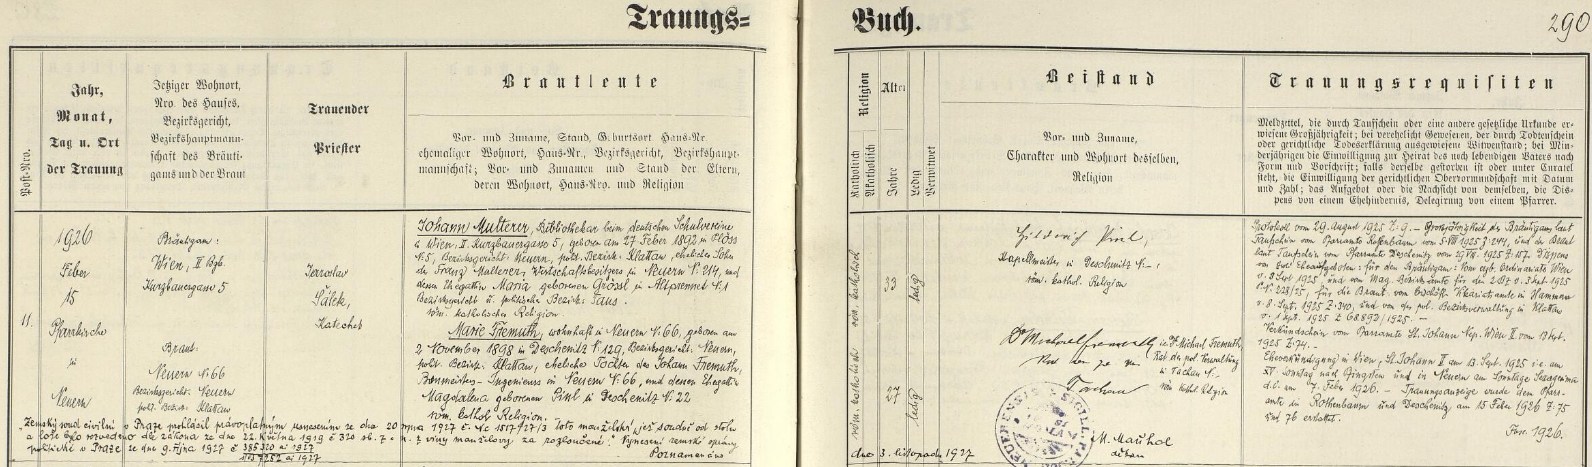 Trauungs=
Buch.
290
Post-Nro.
Jahr,
Monat,
Tag u. Ort
der Trauung
Jetziger Wohnort,
Nro. des Hauses,
Bezirksgericht,
Bezirkshauptmann-
schaft des Bräuti-
gams und der Braut
Trauender
Priester
Brautleute
Vor- und Zuname, Stand, Geburtsort Haus-Nr.
ehemaliger Wohnort, Haus-Nr., Bezirksgericht, Bezirkshaupt-
mannschaft; Vor- und Zunamen und Stand der Eltern,
deren Wohnort, Haus-Nro. und Religion
Religion
Katholisch
Akatholisch
Alter
Jahre
Ledig
Verwitwet
Beistand
Vor- und Zuname,
Charakter und Wohnort desselben,
Religion
Trauungsrequisiten
Meldzettel, die durch Taufschein oder eine andere gesetzliche Urkunde er-
wiesene Großjährigkeit; bei verehelicht Gewesenen, der durch Todtenschein
oder gerichtliche Todeserklärung ausgewiesene Witwenstand; bei Min-
derjährigen die Einwilligung zur Heirat des noch lebendigen Vaters nach
Form und Vorschrift; falls derselbe gestorben ist oder unter Curatel
steht, die Einwilligung der gerichtlichen Obervormundschaft mit Datum
und Zahl; das Aufgebot oder die Nachsicht von demselben, die Dis-
pens von einem Ehehindernis, Delegirung von einem Pfarrer.
11.
1926
Feber
15
Pfarrkirche
in
Neuern
Bräutigam:
Wien, II Bgb.
Kurzbauergasse 5
Braut:
Neuern N: 66
Bezirksgericht: Neuern
polit. Bezirk: Klattau
Jaroslav
Sálek,
Katechet
Johann Mutterer, Bibliothekar beim deutschen Schulvereine
in Wien, II. Kurzbauergasse 5, geboren am 27 Feber 1892 in Flöss
N: 5, Bezirksgericht: Neuern, polit. Bezirk: Klattau, ehelicher Sohn
des Franz Mutterer, Wirtschaftsbesitzers in Neuern N: 214, und
dessen Ehegattin Maria geborenen Grössl in Altprennet N: 1
Bezirksgericht u. politische Bezirk: Taus.
röm. katholische Religion
Marie Fremuth, wohnhaft in Neuern N: 66, geboren am
2 November 1898 in Deschenitz N: 129, Bezirksgericht: Neuern,
polit. Bezirk: Klattau, eheliche Tochter des Johann Fremuth,
Baumeisters - Ingenieurs in Neuern N: 66, und dessen Ehegattin
Magdalena geborenen Pinl in Deschenitz N: 22
röm. kathol. Religion.
33
ledig
27
ledig
Pinl,
Kapellmeister in Deschenitz N: 1
röm. kathol. Religion
Dr Michael Fremuth
i.e. Dr Michael Fremuth,
Rat der pol. Verwaltung
in Tachau
röm. kathol. Religion
Tachau
Protokoll vom 29. August 1925 Z: 9. - Grossjährigkeit des Bräutigams laut
Taufschein vom Pfarramte Rothenbaum vom 5 VIII 1925 Z: 244, und der Braut
laut Taufschein vom Pfarramte Deschenitz vom 29 VIII 1925 Z: 117. Dispens
von zwei Eheaufgeboten: für den Bräutigam: Vom erzb. Ordinariate Wien
v. 3 Sept 1925, und vom Mag. Bezirksamte für den 2 Bz v. 3 Sept. 1925
für die Braut: vom bischöfl. Vikariatsamte in Hammern
v. 8. Sept. 1925 Z: 340, und von der pol. Bezirksverwaltung in Klattau
v. 1 Sept. 1925 Z 68.892/1925. -
Verkündschein vom Pfarramte St. Johann Nep. Wien II vom
1925 Z: 74. -
Eheverkündigung in Wien, St. Johann II am 13. Sept. 1925 i.e. am
XV Sonntag nach Pfingsten und in Neuern am Sonntage Sexagesima
d.i. am 7. Feber 1926. - Trauungsanzeige wurde dem Pfarr-
amte in Rothenbaum und Deschenitz am 15 Feber 1926 Z: 75
und 76 erstattet.
1926.
Zemský soud civilní v Praze prohlásil pravoplatným usnesením ze dne 20 srpna 1927 č. Nc 1517/27/3 toto manželství jest soudně od stolu
a lože bylo rozvedeno dle zákona ze dne 22. května 1919 č 320 sb. z. n. z viny manželovy za rozloučené. Vynesení zemské správy
politické v Praze ze dne 9. října 1927 č 385320 ai 1927
Poznamenáno
dne 3. listopadu 1927
M. Mauhol
děkan